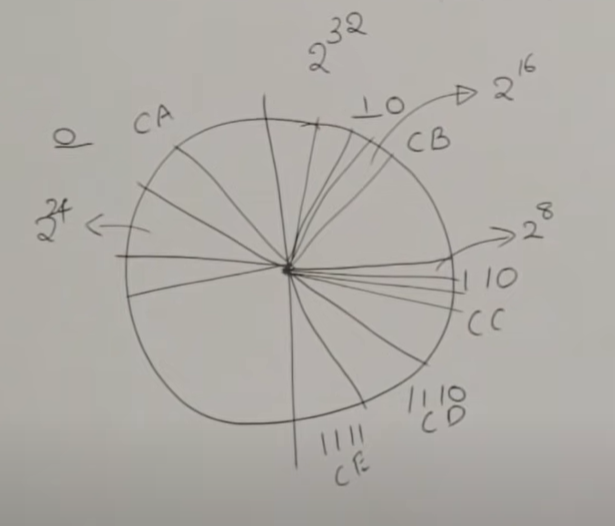 2^32
0 CA
10
2^16
CB
2^24
2^8
110
CC
1110
CD
1111
CE